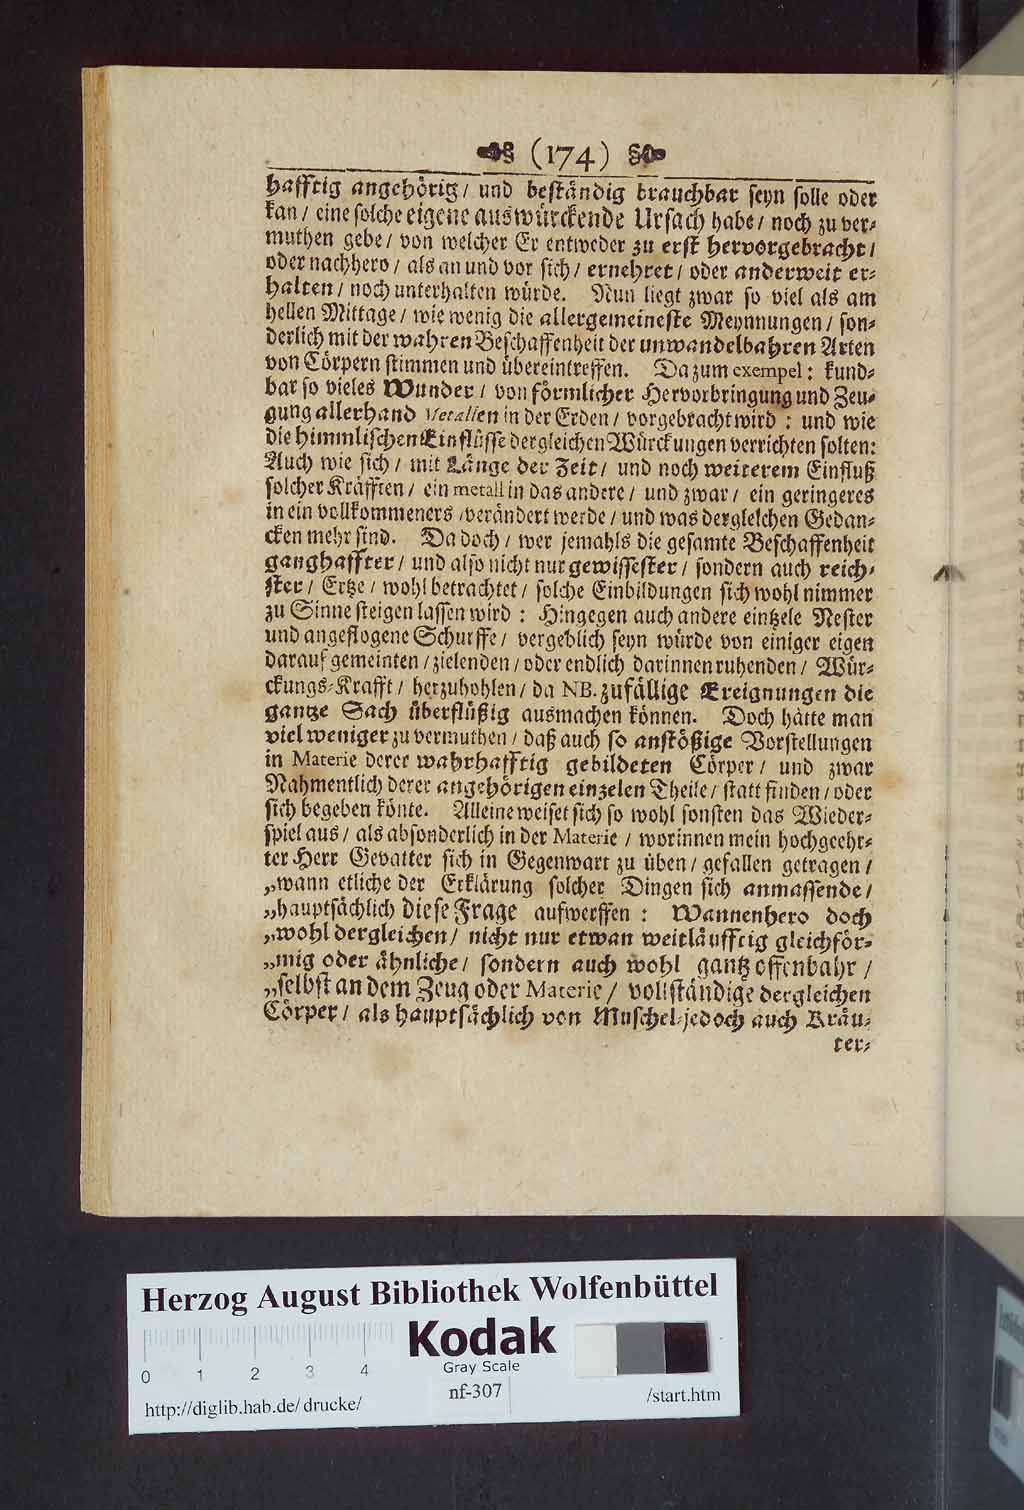 (174)
hafftig angehörig/ und beständig brauchbar seyn solle oder
kan/ eine solche eigene auswürckende Ursach habe/ noch zu ver-
muthen gebe/ von welcher Er entweder zu erst hervorgebracht/
oder nachhero/ als an und vor sich/ ernehret/ oder anderweit er-
halten/ noch unterhalten würde. Nun liegt zwar so viel als am
hellen Mittage/ wie wenig die allergemeineste Meynnungen/ son-
derlich mit der wahren Beschaffenheit der unwandelbahren Arten
von Cörpern stimmen und übereintreffen. Da zum exempel: kund-
bar so vieles Wunder/ von förmlicher Hervorbringung und Zeu-
gung allerhand Metallen in der Erden/ vorgebracht wird: und wie
die himmlischen Einflüsse dergleichen Würckungen verrichten solten:
Auch wie sich/ mit Länge der Zeit/ und noch weiterem Einfluß
solcher Kräfften/ ein metall in das andere/ und zwar/ ein geringeres
in ein vollkommeners/ verändert werde/ und was dergleichen Gedan-
cken mehr sind. Da doch/ wer jemahls die gesamte Beschaffenheit
ganghaffter/ und also nicht nur gewissester/ sondern auch reich-
ster/ Ertze/ wohl betrachtet/ solche Einbildungen sich wohl nimmer
zu Sinne steigen lassen wird: Hingegen auch andere eintzele Nester
und angeflogene Schurffe/ vergeblich seyn würde von einiger eigen
darauf gemeinten/ zielenden/ oder endlich darinnen ruhenden/ Wür-
ckungs-Krafft/ herzuhohlen/ da NB. zufällige Ereignungen die
gantze Sach überflüßig ausmachen können. Doch hätte man
viel weniger zu vermuthen/ daß auch so anstößige Vorstellungen
in Materie derer wahrhafftig gebildeten Cörper/ und zwar
Nahmentlich derer angehörigen einzelen Theile/ statt finden/ oder
sich begeben könte. Alleine weiset sich so wohl sonsten das Wieder-
spiel aus/ als absonderlich in der Materie/ worinnen mein hochgeehr-
ter Herr Gevatter sich in Gegenwart zu üben/ gefallen getragen/
„wann etliche der Erklärung solcher Dingen sich anmassende/
„hauptsächlich diese Frage aufwerffen: Wannenhero doch
„wohl dergleichen/ nicht nur etwan weitläufftig gleichför-
„mig oder ähnliche/ sondern auch wohl gantz offenbahr/
„selbst an dem Zeug oder Materie/ vollständige dergleichen
Cörper/ als hauptsächlich von Muschel-jedoch auch Kräu-
ter-
Herzog August Bibliothek Wolfenbüttel
Kodak
Gray Scale
0 1 2 3 4
nf-307
http://diglib.hab.de/drucke/
/start.htm